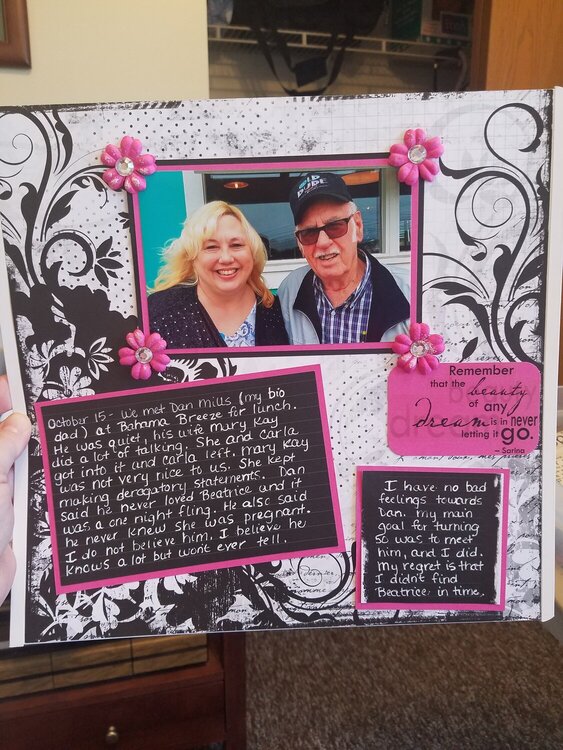 OLD
DUDE
October 15 - We met Dan Mills (my bio
dad) at Bahama Breeze for lunch.
He was quiet, his wife Mary Kay
did a lot of talking. She and Carla
got into it and Carla left. Mary Kay
was not very nice to us. She kept
making deragatory statements. Dan
said he never loved Beatrice and it
was a one night fling. He also said
he never knew she was pregnant.
I do not believe him. I believe he
knows a lot but won't ever tell.
Remember
that the beauty
of any
Dream is in never
letting it go.
— Sarina
I have no bad
feelings towards
Dan. My main
goal for turning
50 was to meet
him, and I did.
My regret is that
I didn't find
Beatrice in time.